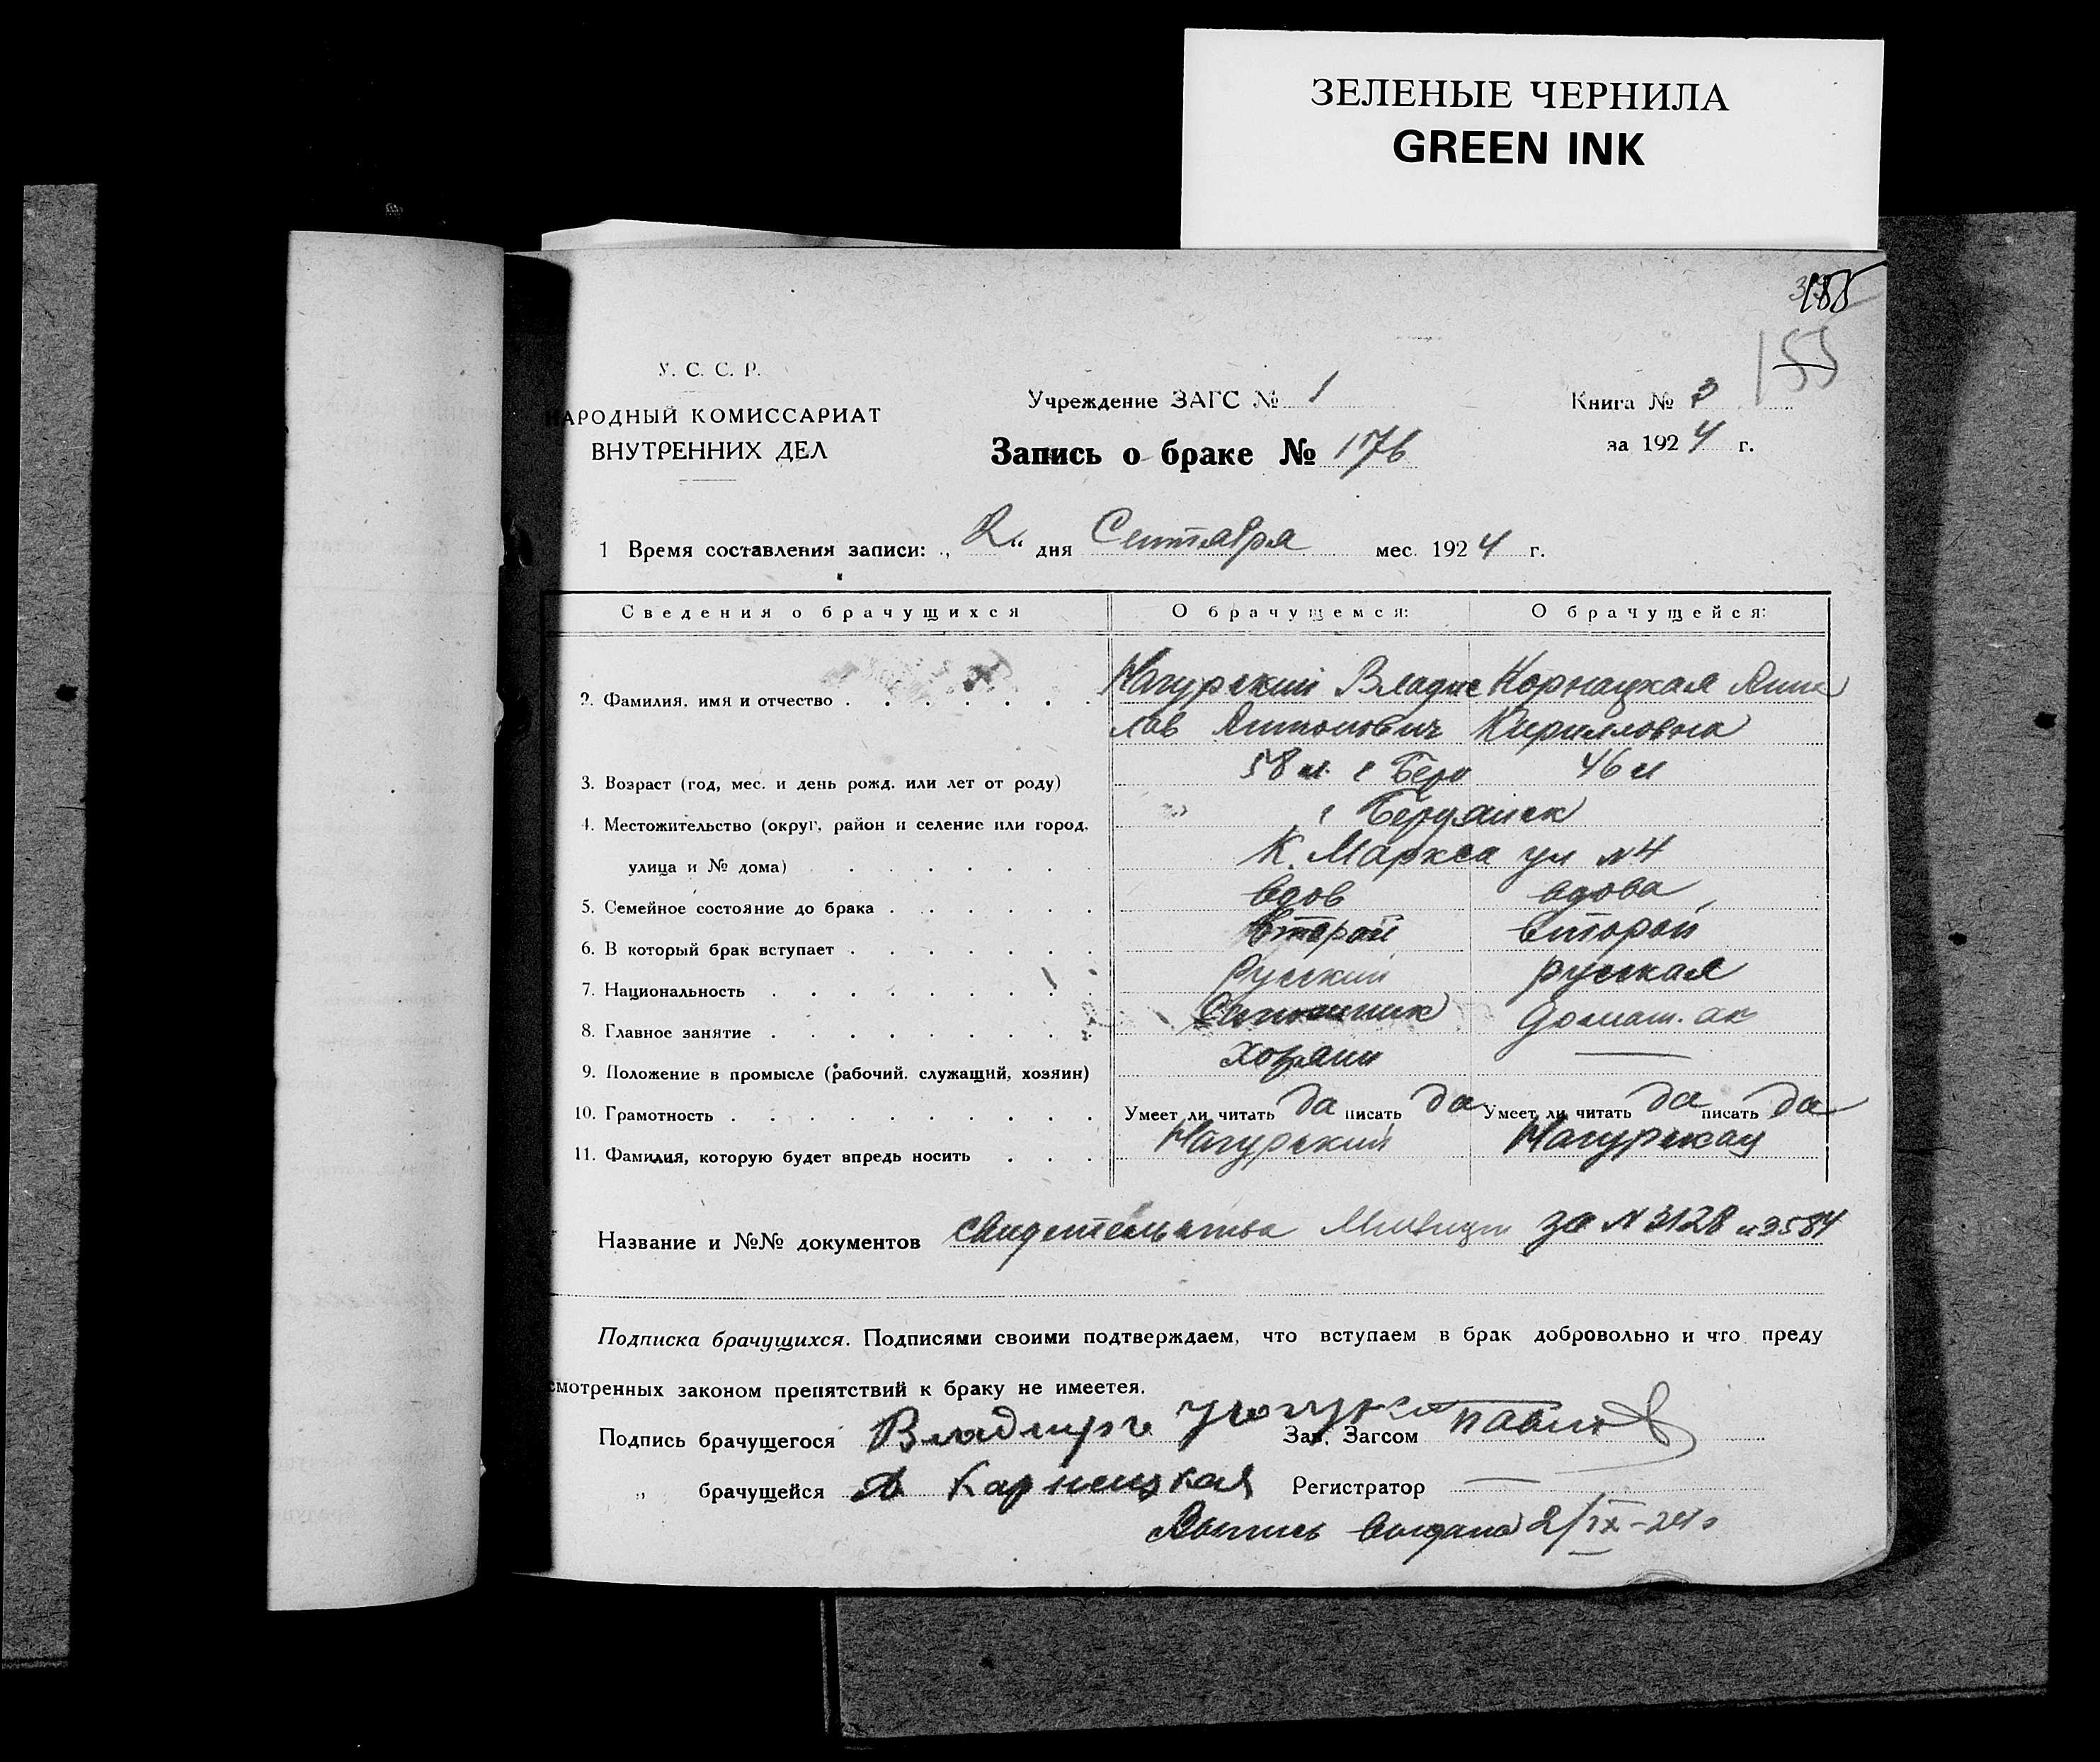 ЗЕЛЕНЫЕ ЧЕРНИЛА
GREEN INK
155
155
У. С. С. Р.
НАРОДНЫЙ КОМИССАРИАТ
ВНУТРЕННИХ ДЕЛ
Учреждение ЗАГС № 1
Книга № 3
за 1924 г.
Запись о браке № 176
1 Время составления записи: „2“ дня Сентября мес. 1924 г.
Сведения о брачущихся О брачущемся: О брачущейся:
2. Фамилия, имя и отчество Нагурский Владис Корнацкая Анна
лав Антонович Кирилловна
3. Возраст (год, мес. и день рожд. или лет от роду) 58 л. г Берд 46 л
4. Местожительство (округ, район и селение или город, г Бердянск
улица и № дома) К. Маркса ул N4
5. Семейное состояние до брака вдов вдова
6. В который брак вступает второй второй
7. Национальность Русский русская
8. Главное занятие Сапожник домаш. хоз
9. Положение в промысле (рабочий, служащий, хозяин) хозяин —
10. Грамотность Умеет ли читать да писать да Умеет ли читать да писать да
11. Фамилия, которую будет впредь носить Нагурский Нагурская
Название и №№ документов свидетельства Милиции за N 3128 и 3584
Подписка брачущихся. Подписями своими подтверждаем, что вступаем в брак добровольно и что преду
смотренных законом препятствий к браку не имеетея.
Подпись брачущегося Зав. Загсом
„ брачущейся А Карнецкая Регистратор —
Выпись выдана 2/IX-24 г